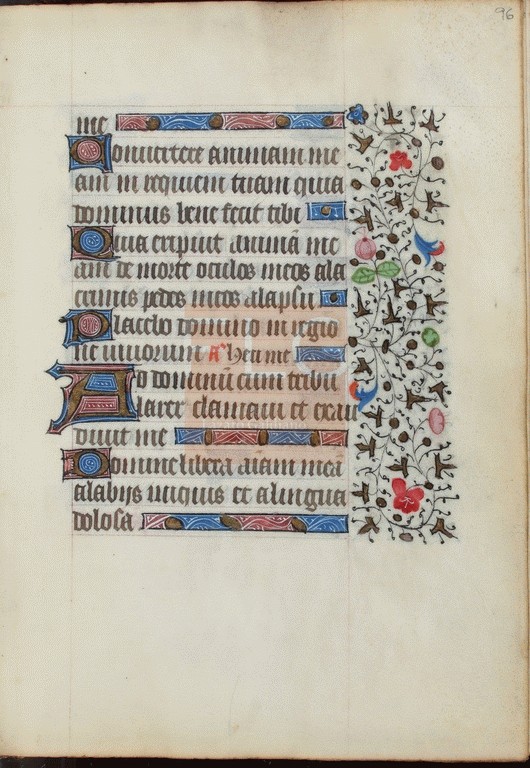 96
me
Convertere animam me
am in requiem tuam quia
dominus bene fecit tibi
Quia eripuit animā me
am de morte oculos meos ala
crimis pedes meos alapsu
Placebo domino in regio
ne vivorum Aña Heu me
Ad dominū cum tribu
larer clamavi et exau
divit me
Domine libera aīam mea
alabijs iniquis et alingua
dolosa